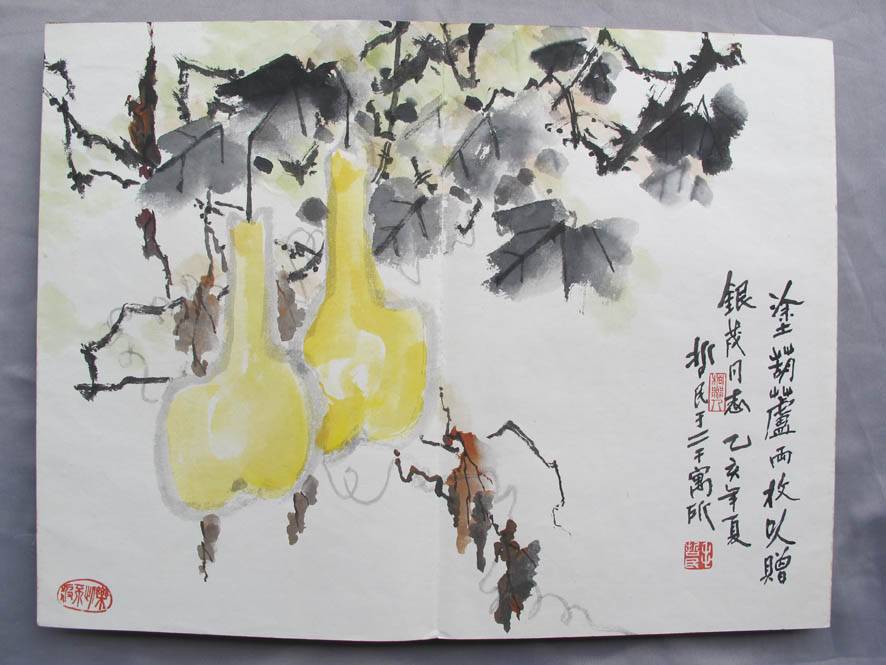 塗葫蘆兩枚以贈
銀茂同志 乙亥年夏
哲民于二干寓所